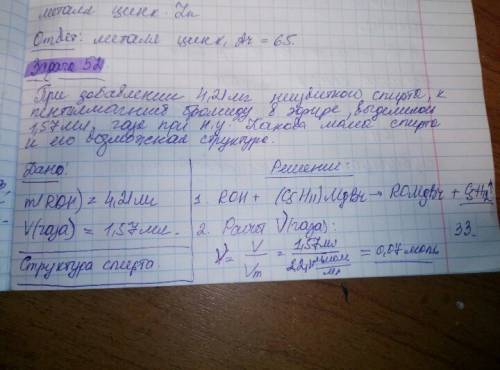 металл цинк. Zn
Ответ: металл цинк, Ar = 65.
Задача 52
При добавлении 4,21мг неизвестного спирта, к
пентилмагний бромиду в эфире, выделилось
1,57мл, газа при н.у. Какова масса спирта
и его возможная структура.
Дано:
m(ROH) = 4,21мг
V(газа) = 1,57мл.
Структура спирта
Решение:
1. ROH + (C5H11)MgBr → ROMgBr + C5H12↑
2. Расчёт V(газа):
33.
V = V/Vm = 1,57мл / 22,4 = 0,07моль